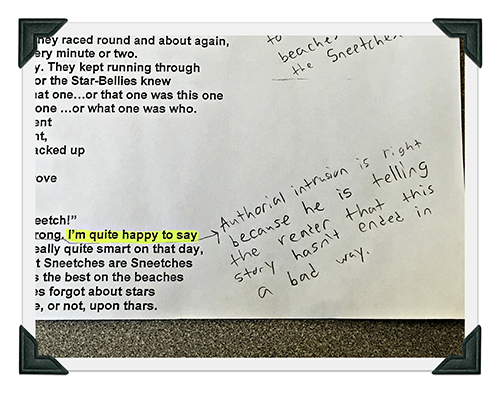 hey raced round and about again,
ery minute or two.
y. They kept running through
or the Star-Bellies knew
hat one…or that one was this one
one …or what one was who.
ent
nt,
acked up
ove
eetch!”
rong. I’m quite happy to say
eally quite smart on that day,
t Sneetches are Sneetches
s the best on the beaches
es forgot about stars
e, or not, upon thars.
to
beaches
the Sneetches.
Authorial intrusion is right
because he is telling
the reader that this
story hasn't ended in
a bad way.